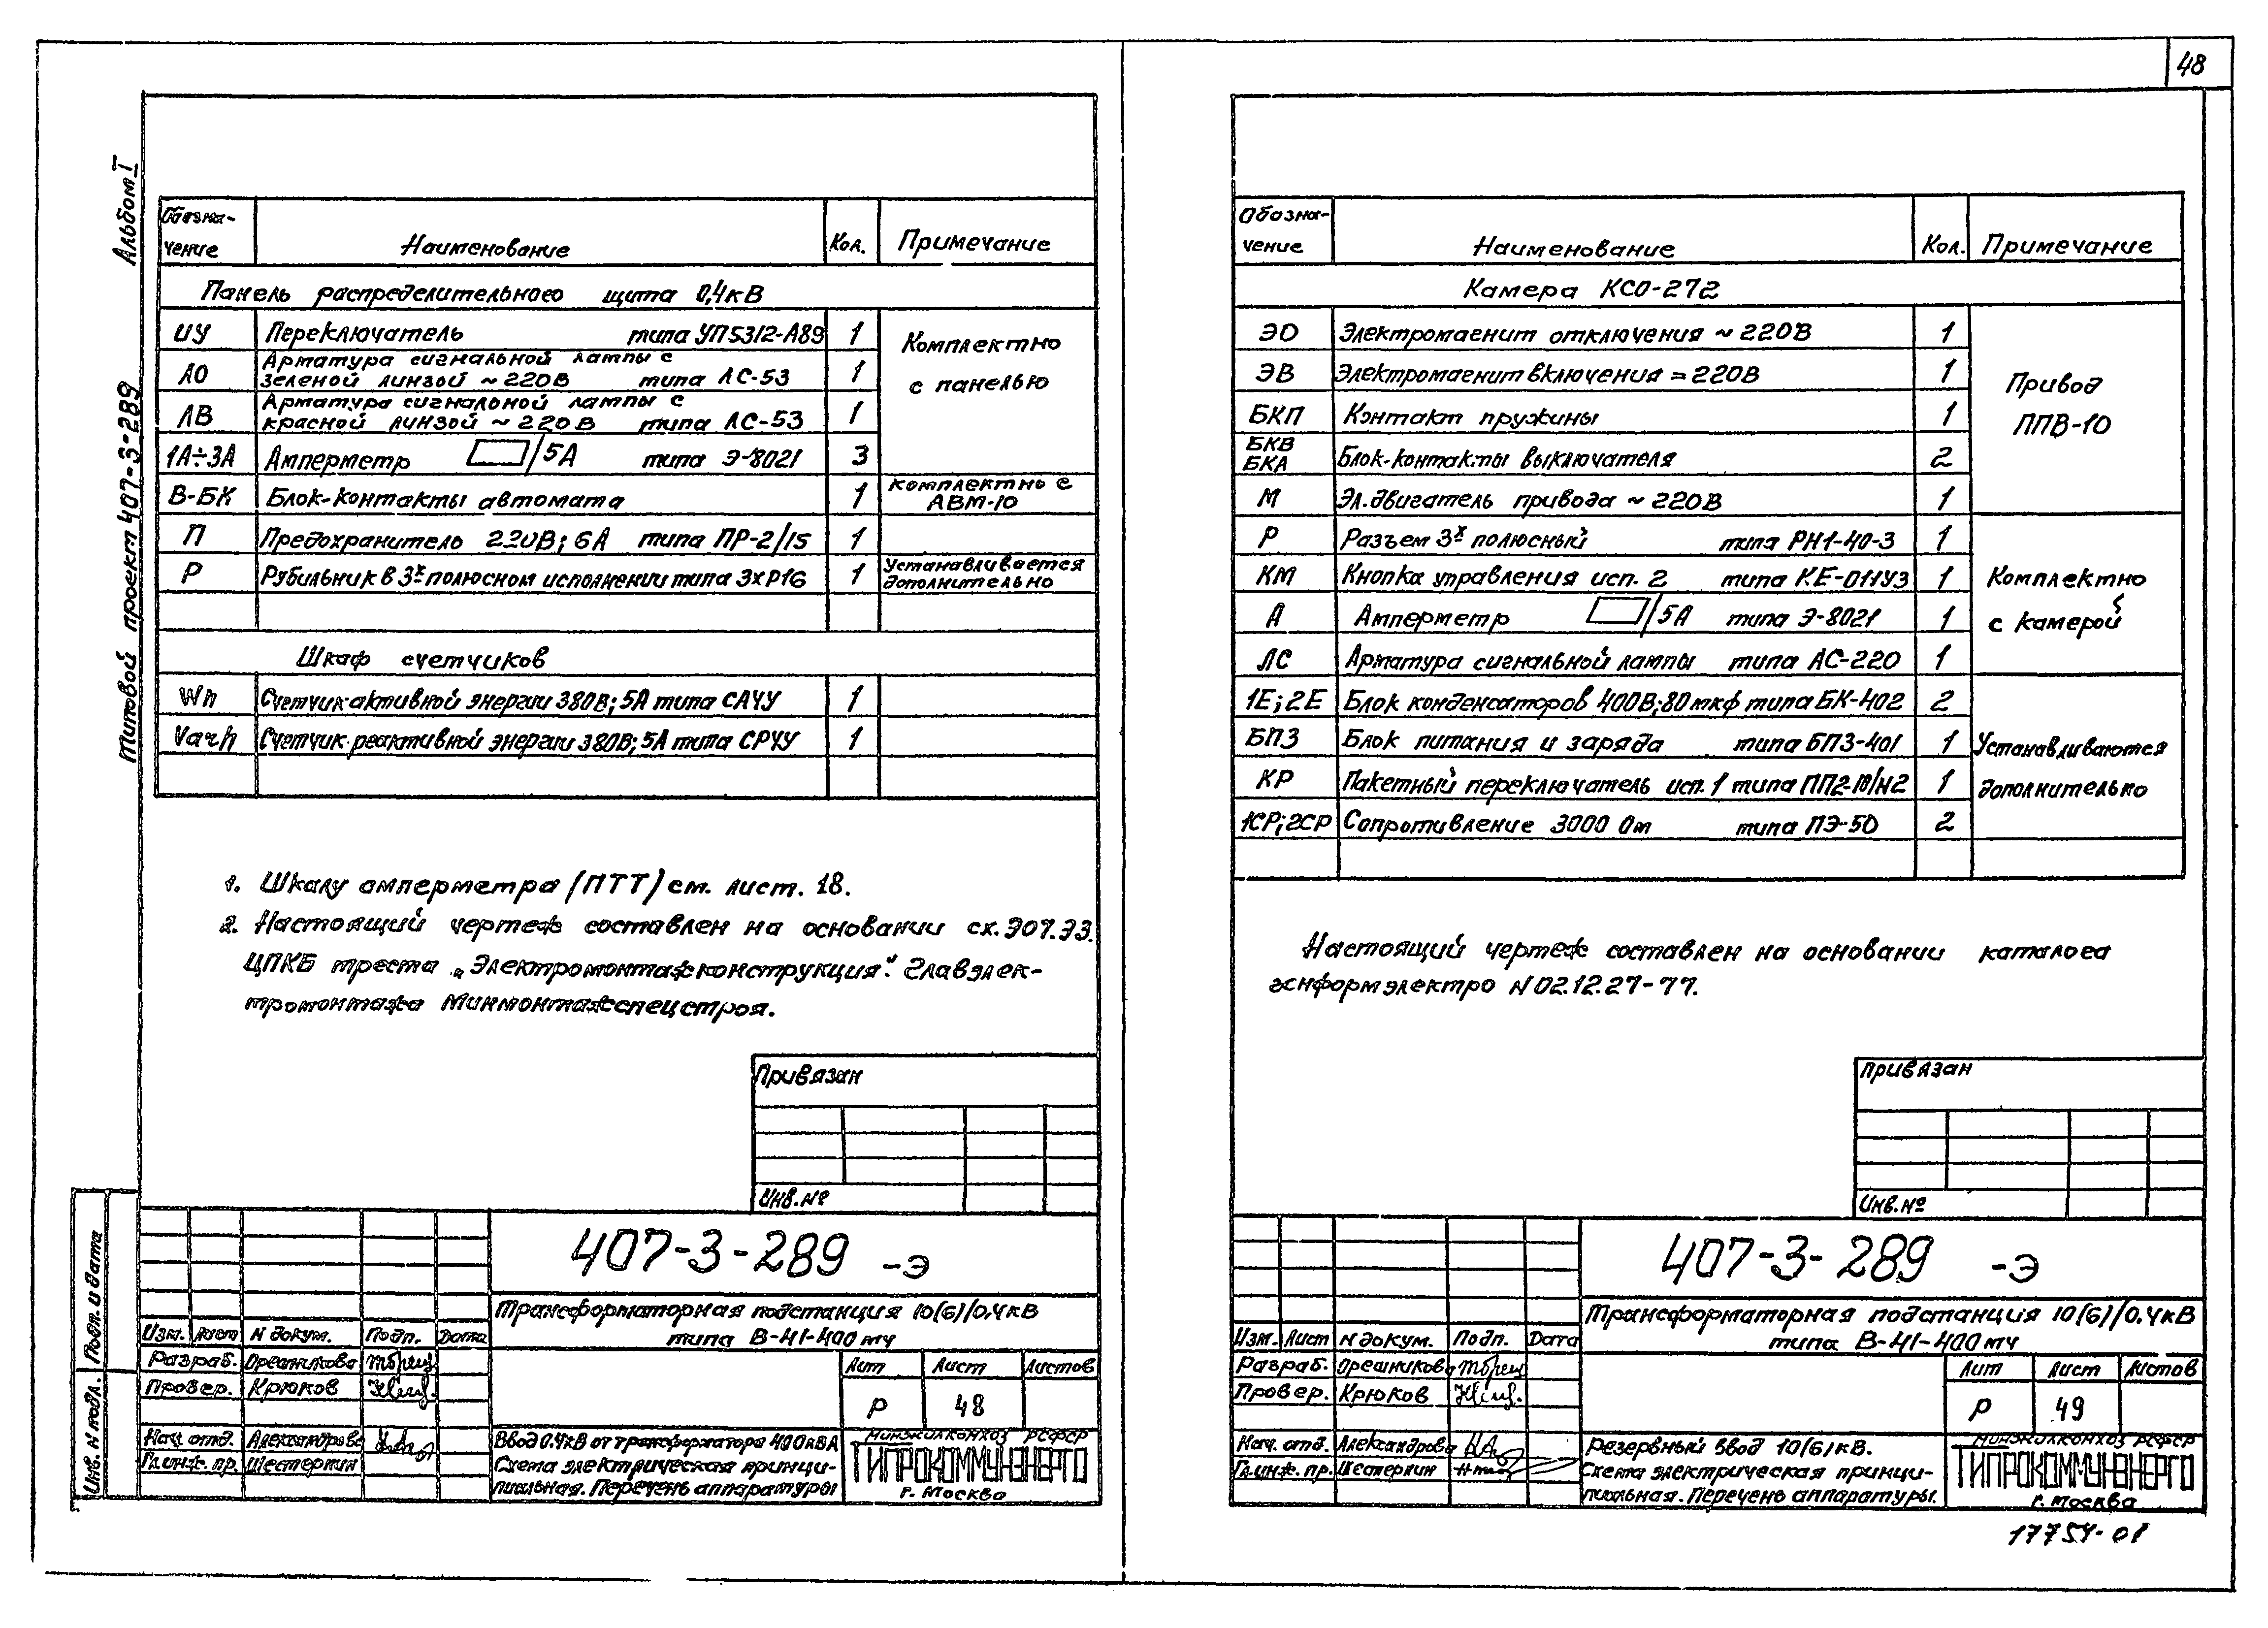 48
Альбом I
Типовой проект 407-3-289
Обозна-
чение
Наименование
Кол.
Примечание
Панель распределительного щита 0,4кВ
ИУ Переключатель типа УП5312-А89 1
Комплектно
с панелью
ЛО Арматура сигнальной лампы с
зеленой линзой ~220В типа ЛС-53 1
ЛВ Арматура сигнальной лампы с
красной линзой ~220В типа ЛС-53 1
1А÷3А Амперметр /5А типа Э-8021 3
В-БК Блок-контакты автомата 1 Комплектно с
АВМ-10
П Предохранитель 220В; 6А типа ПР-2/15 1
Р Рубильник в 3х полюсном исполнении типа 3хР16 1 Устанавливается
дополнительно
Шкаф счетчиков
Wh Счетчик активной энергии 380В; 5А типа САЧУ 1
Varh Счетчик реактивной энергии 380В; 5А типа СРЧУ 1
1. Шкалу амперметра (ПТТ) см. лист. 18.
2. Настоящий чертеж составлен на основании сх. Э07.Э3.
ЦПКБ треста „Электромонтажконструкция" Главэлек-
тромонтажа Минмонтажспецстроя.
Привязан
Инв.№
407-3-289 -Э
Трансформаторная подстанция 10(6)/0,4кВ
типа В-41-400мч
Изм. Лист N докум. Подп. Дата
Разраб. Орешникова
Провер. Крюков
Нач. отд. Александрова
Гл.инж. пр. Шестеркин
Лит Лист Листов
Р 48
Ввод 0.4кВ от трансформатора 400кВА
Схема электрическая принци-
пиальная. Перечень аппаратуры
Минжилкомхоз РСФСР
ГИПРОКОММУНЭНЕРГО
г. Москва
Подп. и дата
Инв. N подл.
Обозна-
чение
Наименование
Кол.
Примечание
Камера КСО-272
ЭО Электромагнит отключения ~220В 1
ЭВ Электромагнит включения =220В 1
Привод
ППВ-10
БКП Контакт пружины 1
БКВ
БКА Блок-контакты выключателя 2
М Эл.двигатель привода ~220В 1
Р Разъем 3х полюсный типа РН1-40-3 1
КМ Кнопка управления исп. 2 типа КЕ-011У3 1
Комплектно
с камерой
А Амперметр /5А типа Э-8021 1
ЛС Арматура сигнальной лампы типа АС-220 1
1Е; 2Е Блок конденсаторов 400В; 80 мкф типа БК-402 2
БПЗ Блок питания и заряда типа БПЗ-401 1
Устанавливаются
дополнительно
КР Пакетный переключатель исп. 1 типа ПП2-10/Н2 1
1СР; 2СР Сопротивление 3000 Ом типа ПЭ-50 2
Настоящий чертеж составлен на основании каталога
Информэлектро N 02.12.27-77.
Привязан
Инв.№
407-3-289 -Э
Трансформаторная подстанция 10(6)/0,4кВ
типа В-41-400мч
Изм. Лист N докум. Подп. Дата
Разраб. Орешникова
Провер. Крюков
Нач. отд. Александрова
Гл.инж. пр. Шестеркин
Лит Лист Листов
Р 49
Резервный ввод 10(6)кВ.
Схема электрическая принци-
пиальная. Перечень аппаратуры.
Минжилкомхоз РСФСР
ГИПРОКОММУНЭНЕРГО
г. Москва
17754-01